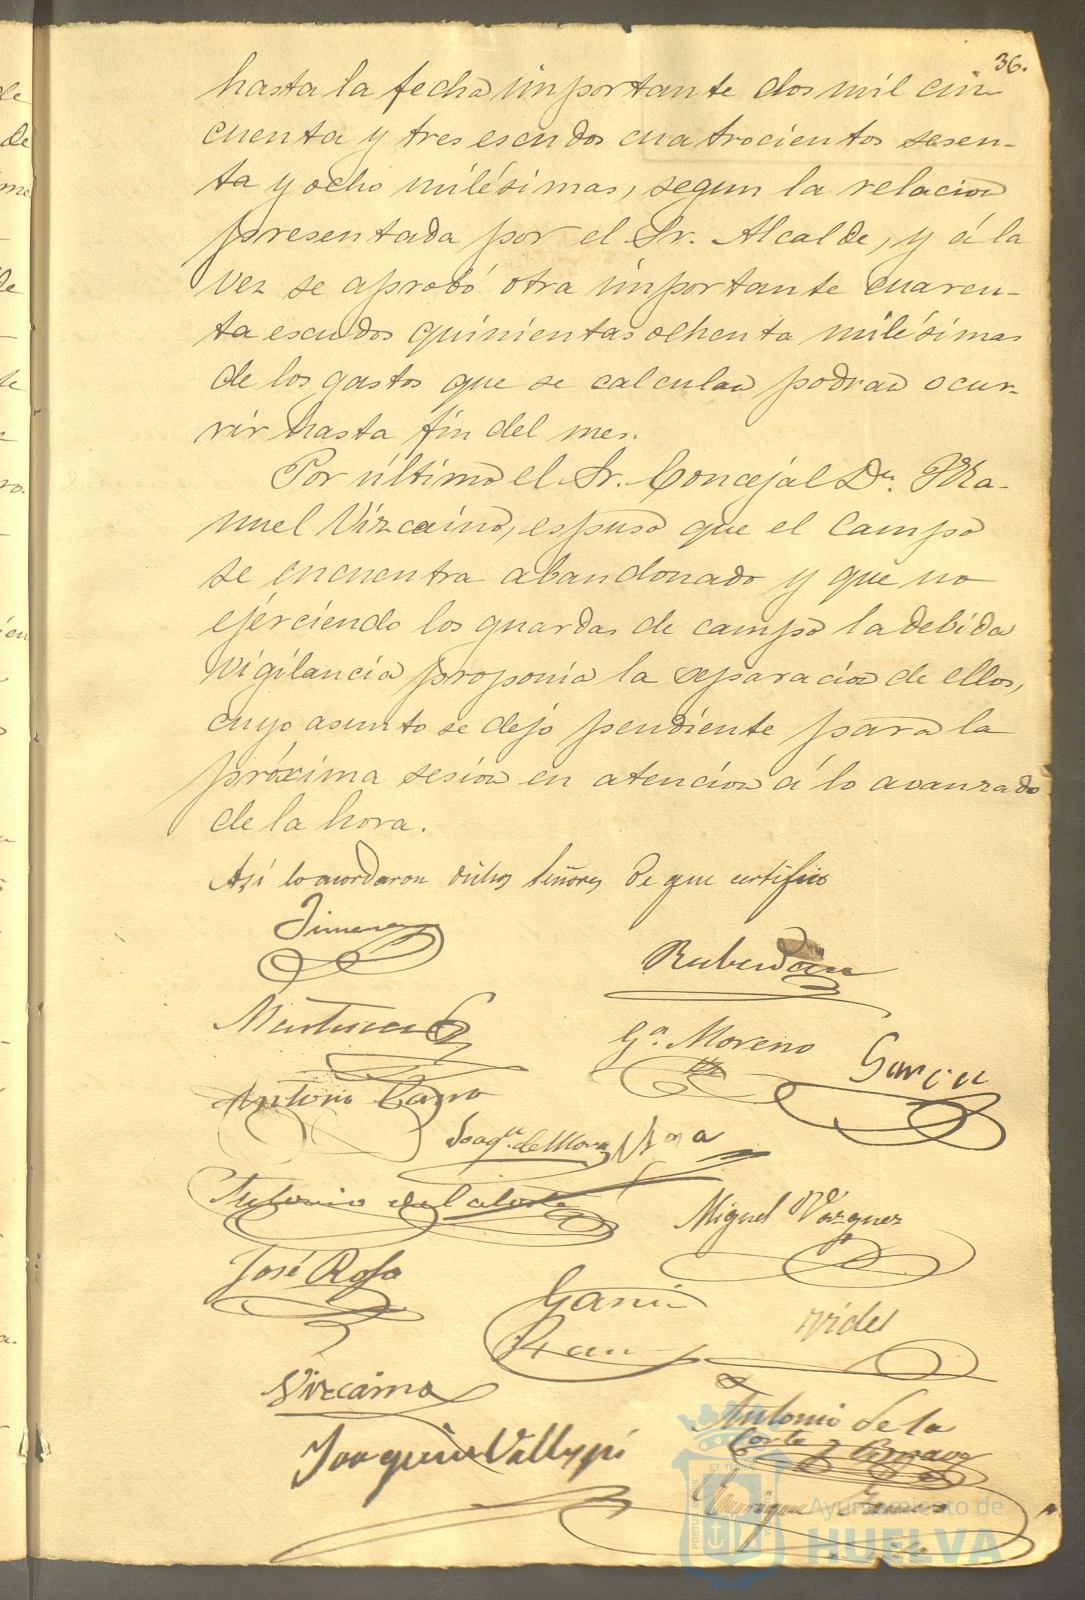 36.
hasta la fecha importante dos mil cin-
cuenta y tres escudos cuatrocientos sesen-
ta y ocho milésimas, segun la relacion
presentada por el Sr. Alcalde, y á la
vez se aprobó otra importante cuaren-
ta escudos quinientas ochenta milésimas
de los gastos que se calculan podran ocur-
rir hasta fin del mes.
Por último el Sr. Concejal Dn. Ma-
nuel Vizcaino, espuso que el campo
se encuentra abandonado y que no
ejerciendo los guardas de campo la debida
vigilancia proponia la separacion de ellos,
cuyo asunto se dejó pendiente para la
próxima sesion en atencion á lo avanzado
de la hora.
Así lo acordaron dichos Señores de que certifico
Jimenez
Martinez
Ga. Moreno
Garcia
Antonio
Joaqn. de Mora
Antonio de
Miguel Vazquez
José Rosa
Garcia
Vides
Vizcaino
Antonio de la
Corte y Bravo
Joaquin
Ayuntamiento de
HUELVA